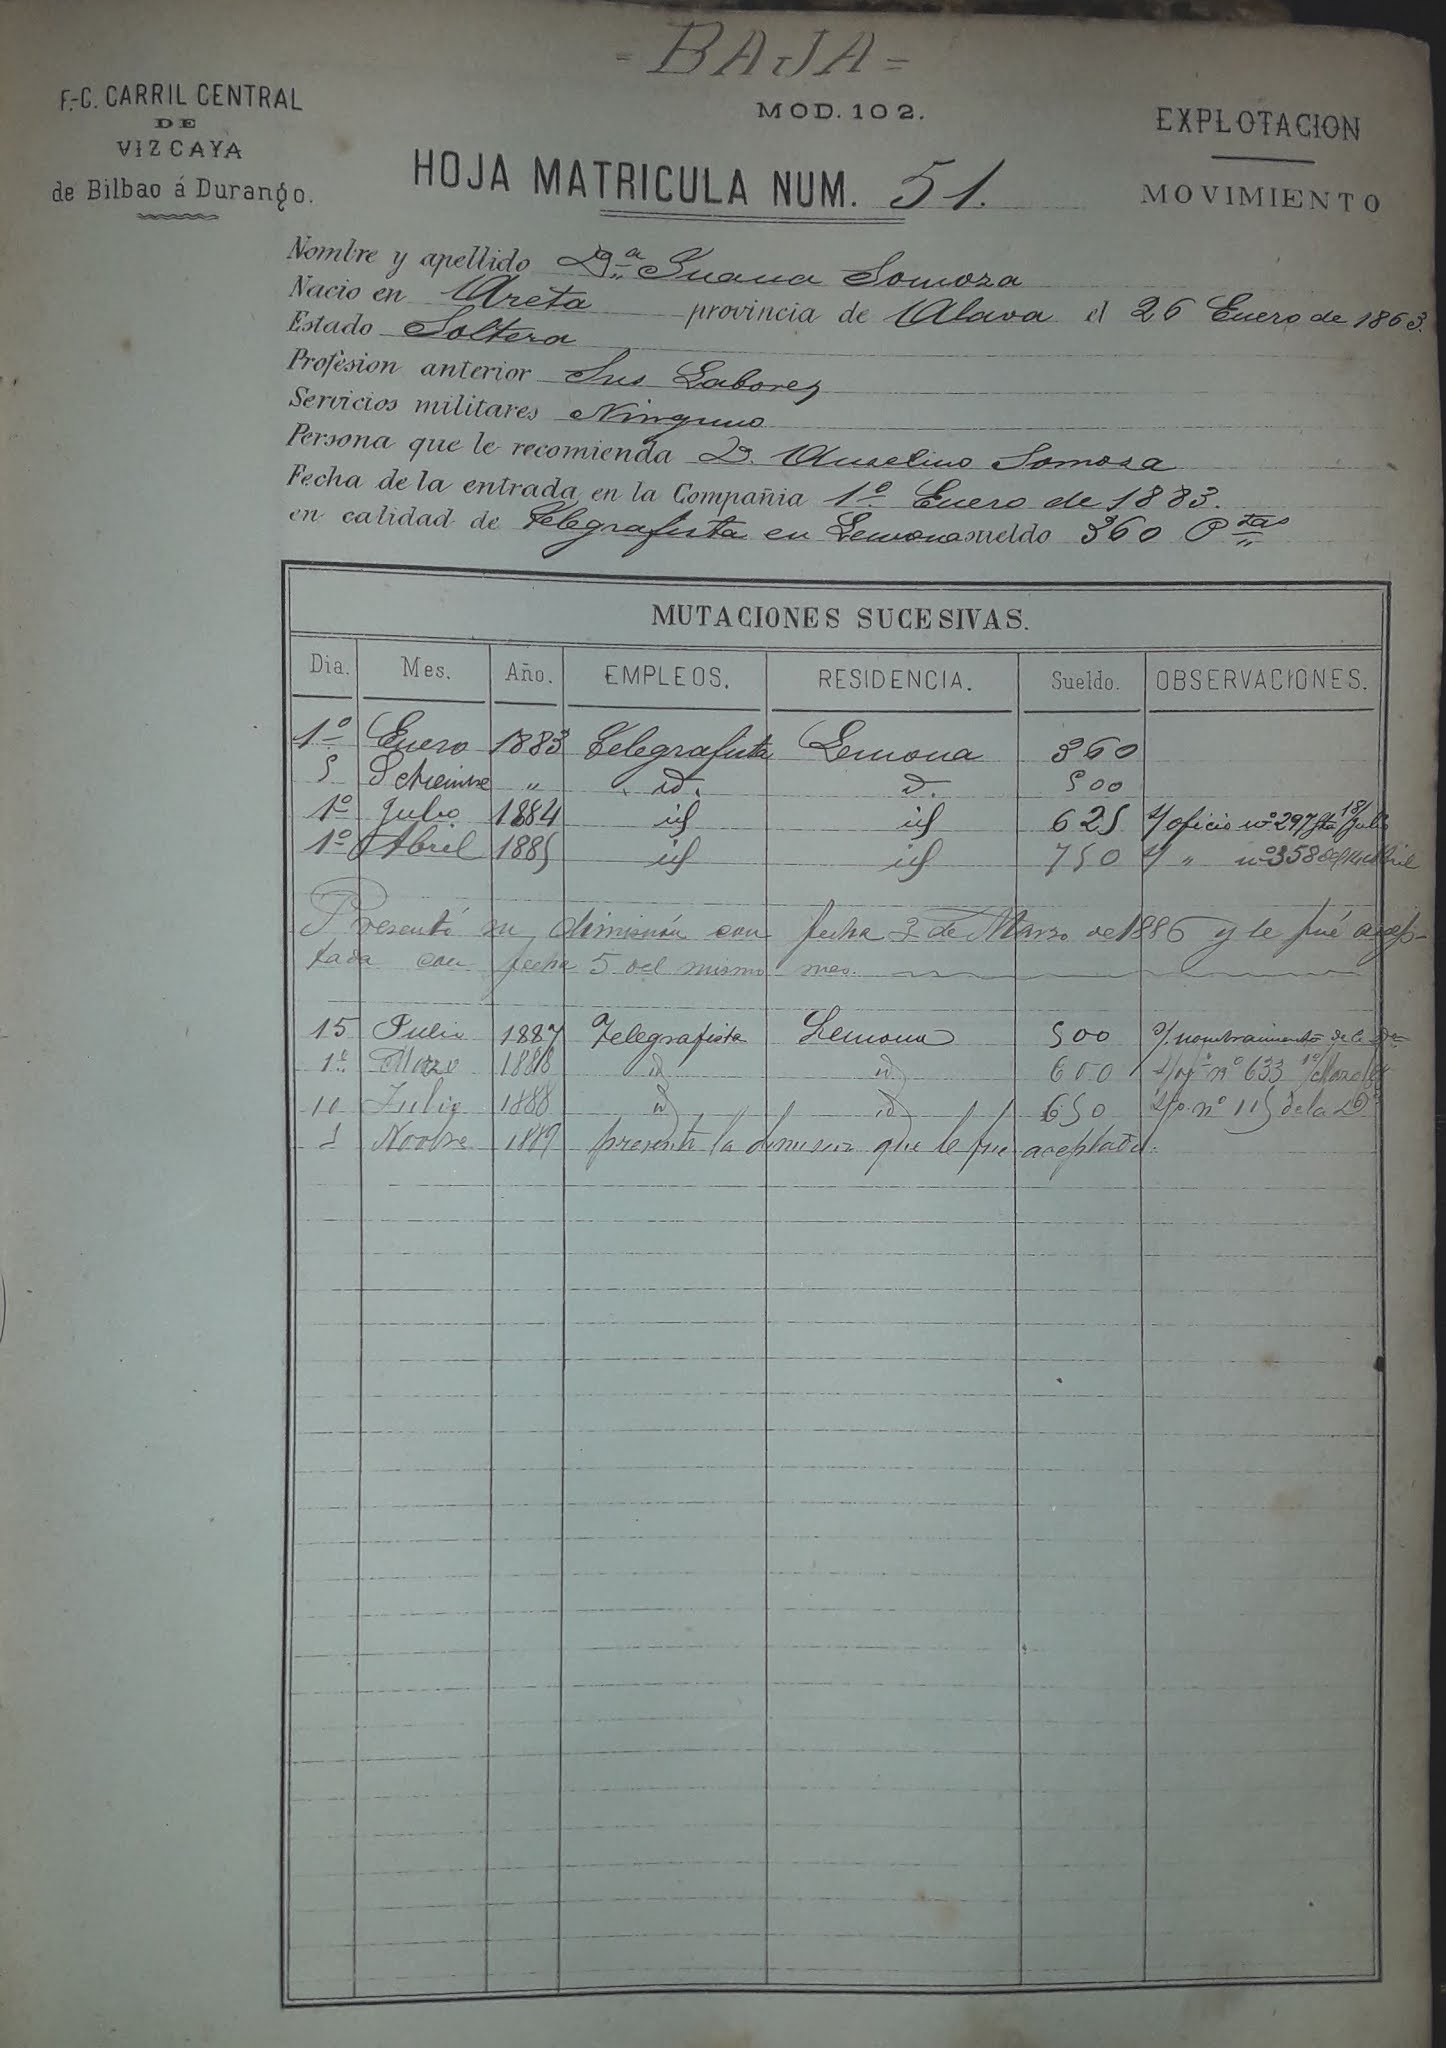 = BAJA =
F.-C. CARRIL CENTRAL
DE
VIZCAYA
de Bilbao á Durango.
MOD. 102.
EXPLOTACION
MOVIMIENTO
HOJA MATRICULA NUM. 51.
Nombre y apellido Dª Juana Somoza
Nacio en Areta provincia de Alava el 26 Enero de 1863.
Estado Soltera
Profesion anterior Sus Labores
Servicios militares Ninguno
Persona que le recomienda D. Anselmo Somoza
Fecha de la entrada en la Compañia 1º Enero de 1883.
en calidad de Telegrafista en Lemona sueldo 360 Ptas
MUTACIONES SUCESIVAS.
Dia. Mes. Año. EMPLEOS. RESIDENCIA. Sueldo. OBSERVACIONES.
1º Enero 1883 Telegrafista Lemona 360
5 Setiembre " id. id. 500
1º Julio 1884 id id 625 s/ oficio nº 297 fha 18/Julio
1º Abril 1885 id id 750 s/ " nº 358 Abril
Presentó su dimisión con fecha 2 de Marzo de 1886 y le fué acep-
tada con fecha 5 del mismo mes.
15 Julio 1887 Telegrafista Lemona 500 s/. nombramiento de la Don
1º Marzo 1888 id id 600 nº 633 1º/Marzo/88
10 Julio 1888 id id 650 s/o. nº 115 de la Dn
1 Novbre 1889 presentó la dimision que le fue aceptada.